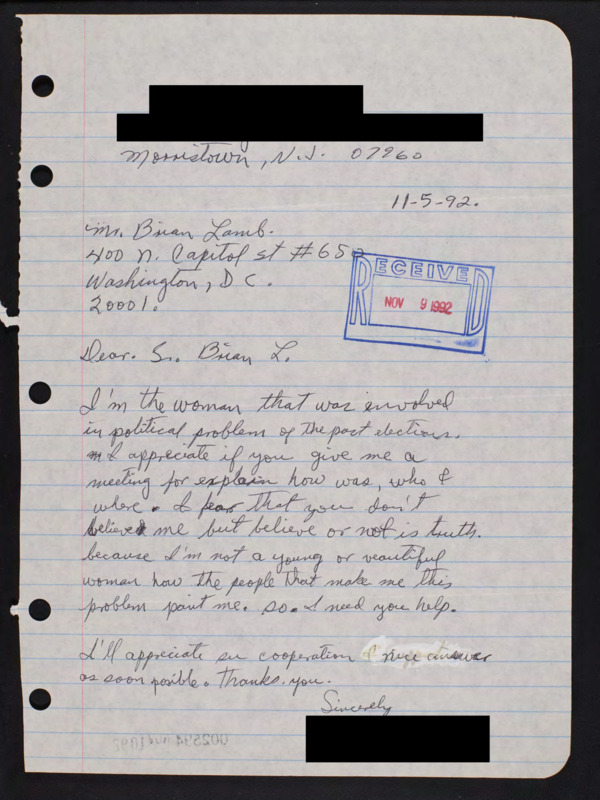 Morristown, N.J. 07960
11-5-92.
Mr. Brian Lamb.
400 N. Capitol st #650
Washington, D C.
20001.
RECEIVED
NOV 9 1992
Dear. S. Brian L.
I'm the woman that was involved
in political problem of the past elections.
I appreciate if you give me a
meeting for explain how was, who &
where. I fear that you don't
believed me but believe or not is truth.
because I'm not a young or veautiful
woman how the people that make me this
problem paint me. so. I need you help.
I'll appreciate su cooperation & nice answer
as soon posible. Thanks. you.
Sincerely